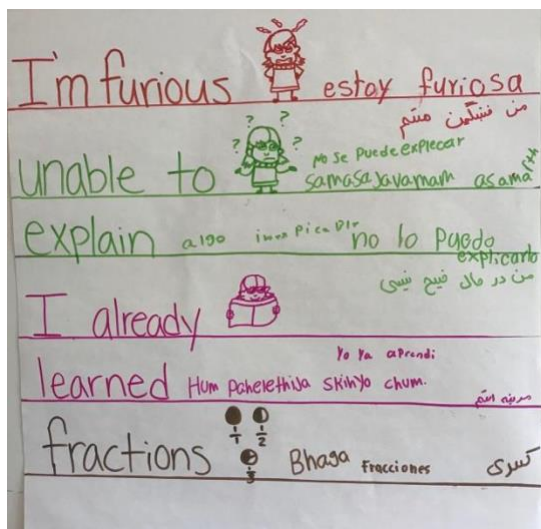 I'm furious estoy furiosa
من خشمگین هستم
? ? ? ?
No Se Puede explecar
unable to samasajavamam asamarth
explain algo inexplicable no lo puedo
explicarlo
من در حال
I already
Yo Ya aprendi
learned Hum pahelethija skihyo chum.
1/1 1/2
1/3
fractions Bhaga Fracciones کسری